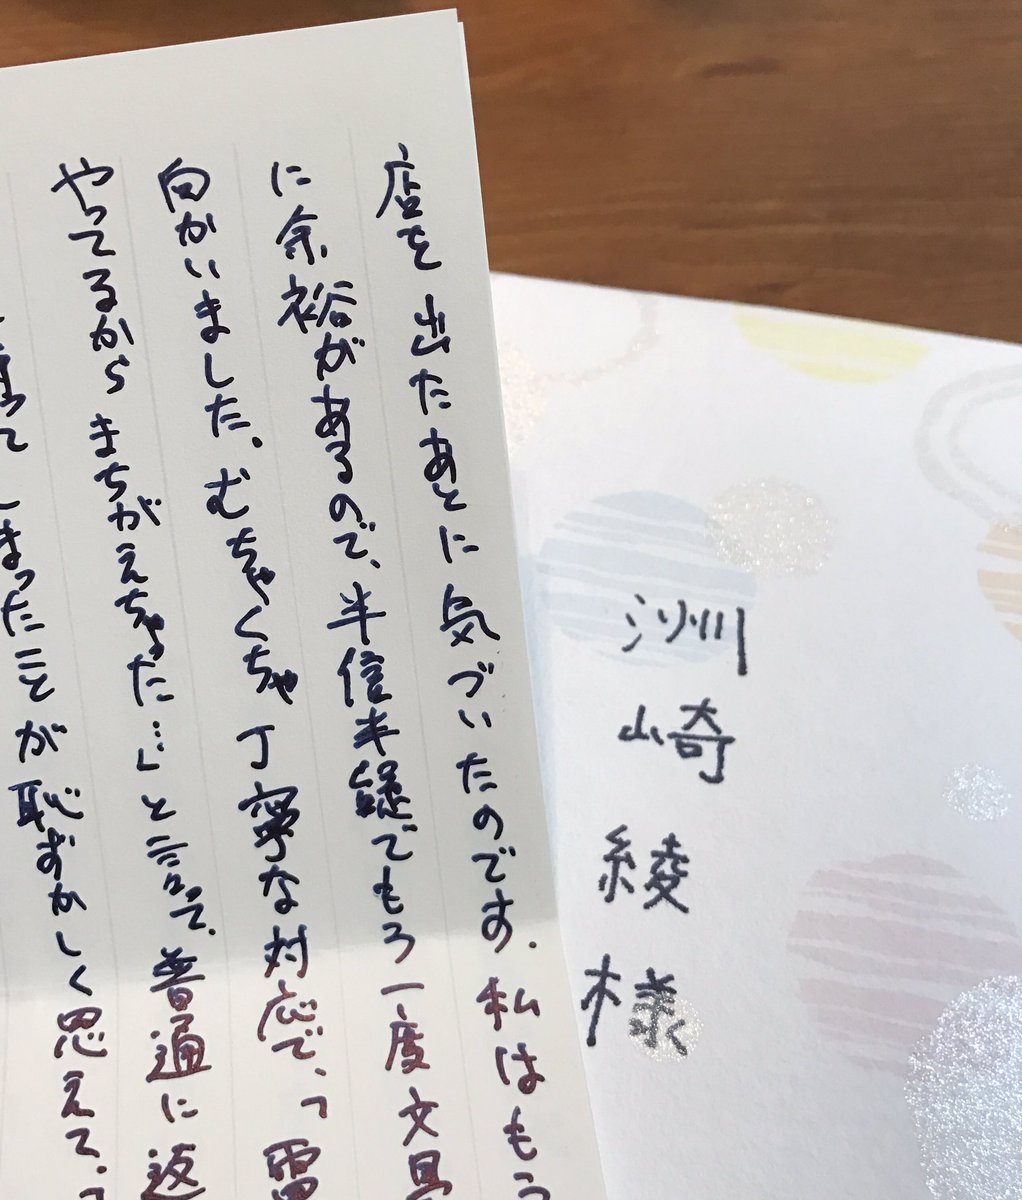 店を出たあとに気づいたのです.私はもう
に余裕があるので、半信半疑でもう一度文具
向かいました.むちゃくちゃ丁寧な対応で、「電
やってるからまちがえちゃった…」と言って、普通に返
しまったことが恥ずかしく思えて、
洲崎
綾
様